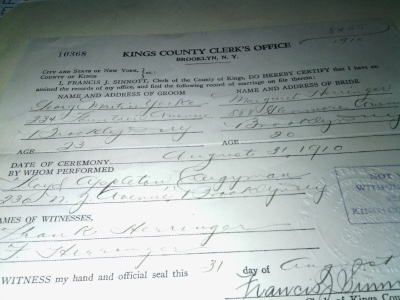 10368
KINGS COUNTY CLERK'S OFFICE
BROOKLYN, N. Y.
1910
CITY AND STATE OF NEW YORK,
COUNTY OF KINGS
ss:
I, FRANCIS J. SINNOTT, Clerk of the County of Kings, DO HEREBY CERTIFY that I have ex-
amined the records of my office, and find the following record of marriage on file therein:
NAME AND ADDRESS OF GROOM
NAME AND ADDRESS OF BRIDE
George Martin
Margaret Herringer
234 Avenue
588
Brooklyn
Brooklyn
AGE 23
AGE 20
DATE OF CEREMONY August 31, 1910
BY WHOM PERFORMED
Floyd Appleton, Clergyman
230 Avenue, Brooklyn
NAMES OF WITNESSES,
Frank Herringer
F Herringer
WITNESS my hand and official seal this 31 day of August
Francis J Sinn
Clerk of Kings Coun
NOT
WITHOU
KINGS CO